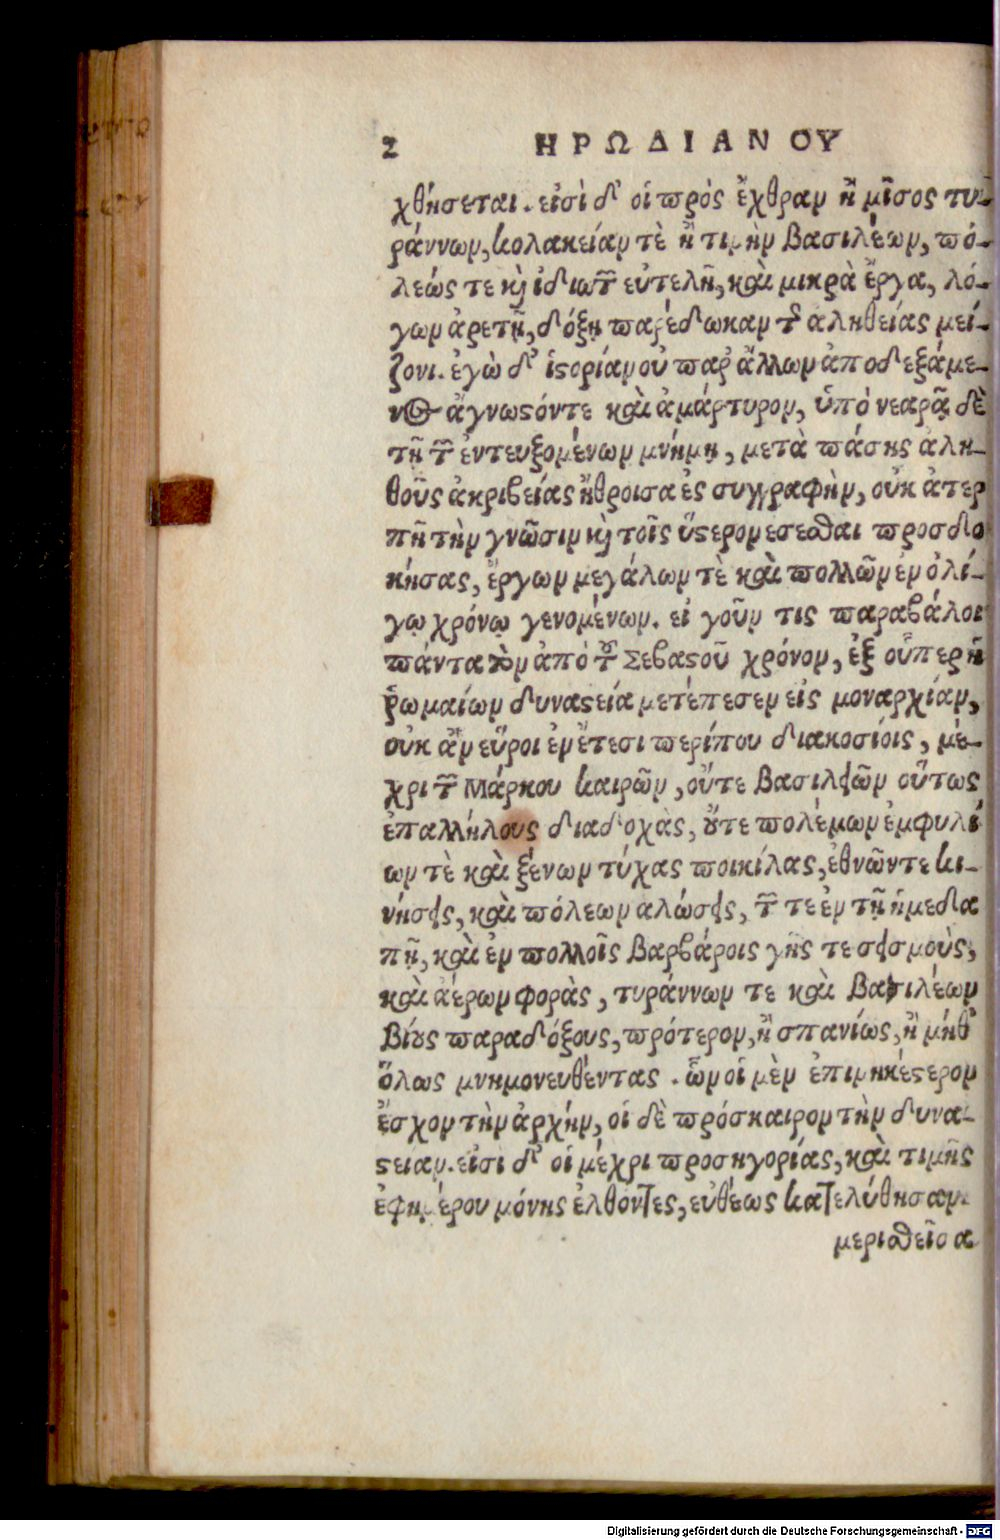 2 ΗΡΩΔΙΑΝΟΥ
χθήσεται. εἰσὶ δ' οἱ πρὸς ἔχθραν ἢ μῖσος τυ-
ράννων, κολακείαν τὲ ἢ τιμὴν βασιλέων, πό-
λεώς τε καὶ ἰδιωτῶν εὐτελῆ, καὶ μικρὰ ἔργα, λό-
γων ἀρετῇ, δόξῃ παρέδωκαν τῆς ἀληθείας μεί-
ζονι. ἐγὼ δ' ἱστορίαν οὐ παρ' ἄλλων ἀποδεξάμε-
νος ἄγνωστόντε καὶ ἀμάρτυρον, ὑπὸ νεαρᾷ δὲ
τῇ τῶν ἐντευξομένων μνήμῃ, μετὰ πάσης ἀλη-
θοῦς ἀκριβείας ἤθροισα ἐς συγγραφὴν, οὐκ ἀτερ
πῆ τὴν γνῶσιν καὶ τοῖς ὕστερον ἔσεσθαι προσδο
κήσας, ἔργων μεγάλων τὲ καὶ πολλῶν ἐν ὀλί-
γῳ χρόνῳ γενομένων. εἰ γοῦν τις παραβάλοι
πάντα τὸν ἀπὸ τοῦ Σεβαστοῦ χρόνον, ἐξ οὗπερ ἡ
ῥωμαίων δυναστεία μετέπεσεν εἰς μοναρχίαν,
οὐκ ἂν εὕροι ἐν ἔτεσι περίπου διακοσίοις, μέ-
χρι τῶν Μάρκου καιρῶν, οὔτε βασιλειῶν οὕτως
ἐπαλλήλους διαδοχὰς, οὔτε πολέμων ἐμφυλί
ων τὲ καὶ ξένων τύχας ποικίλας, ἐθνῶντε κι-
νήσεις, καὶ πόλεων αλώσεις, τῶν τε ἐν τῇ ἡμεδα
πῇ, καὶ ἐν πολλοῖς βαρβάροις γῆς τε σεισμοὺς,
καὶ ἀέρων φορὰς, τυράννων τε καὶ βασιλέων
βίους παραδόξους, πρότερον, ἢ σπανίως, ἢ μήθ'
ὅλως μνημονευθέντας. ὧν οἱ μὲν ἐπιμηκέστερον
ἔσχον τὴν ἀρχήν, οἱ δὲ πρόσκαιρον τὴν δυνα-
στειαν. εἰσι δ' οἱ μέχρι προσηγορίας, καὶ τιμῆς
ἐφημέρου μόνης ἐλθόντες, εὐθέως κατελύθησαν.
μερισθεῖσα
Digitalisierung gefördert durch die Deutsche Forschungsgemeinschaft - DFG